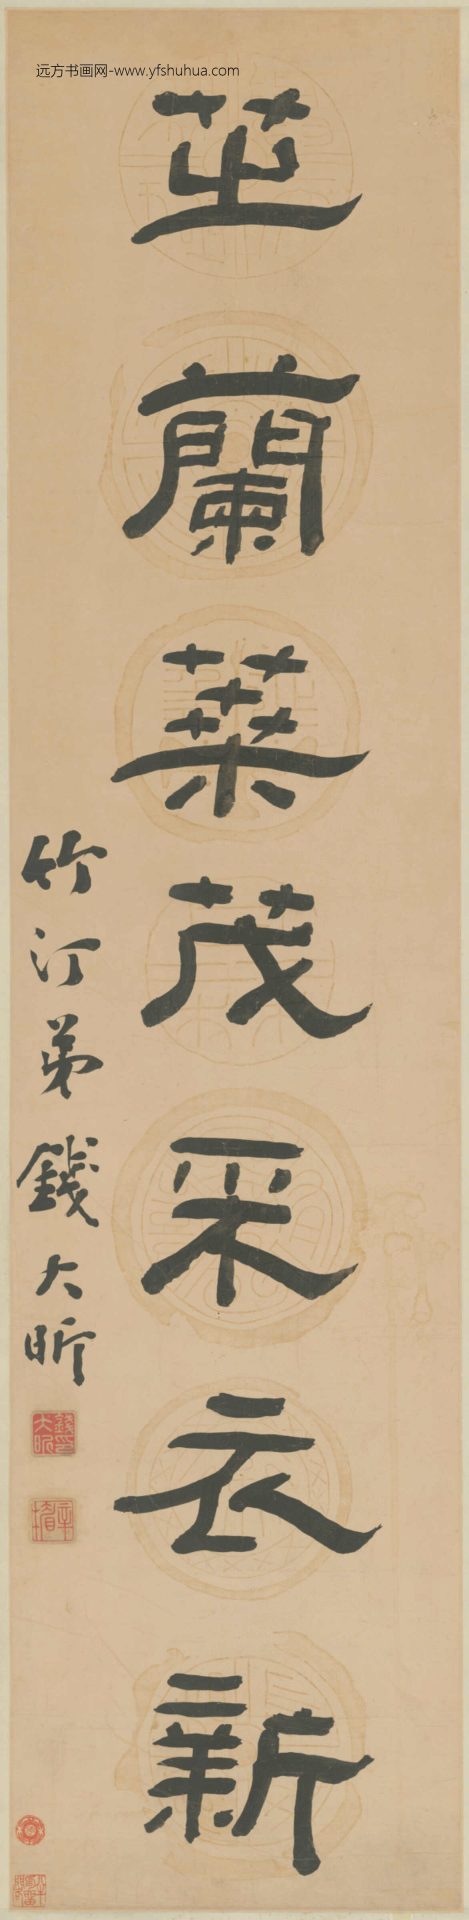 远方书画网-www.yfshuhua.com
芝蘭葉茂采衣新
竹汀弟錢大昕
錢印大昕
辛楣